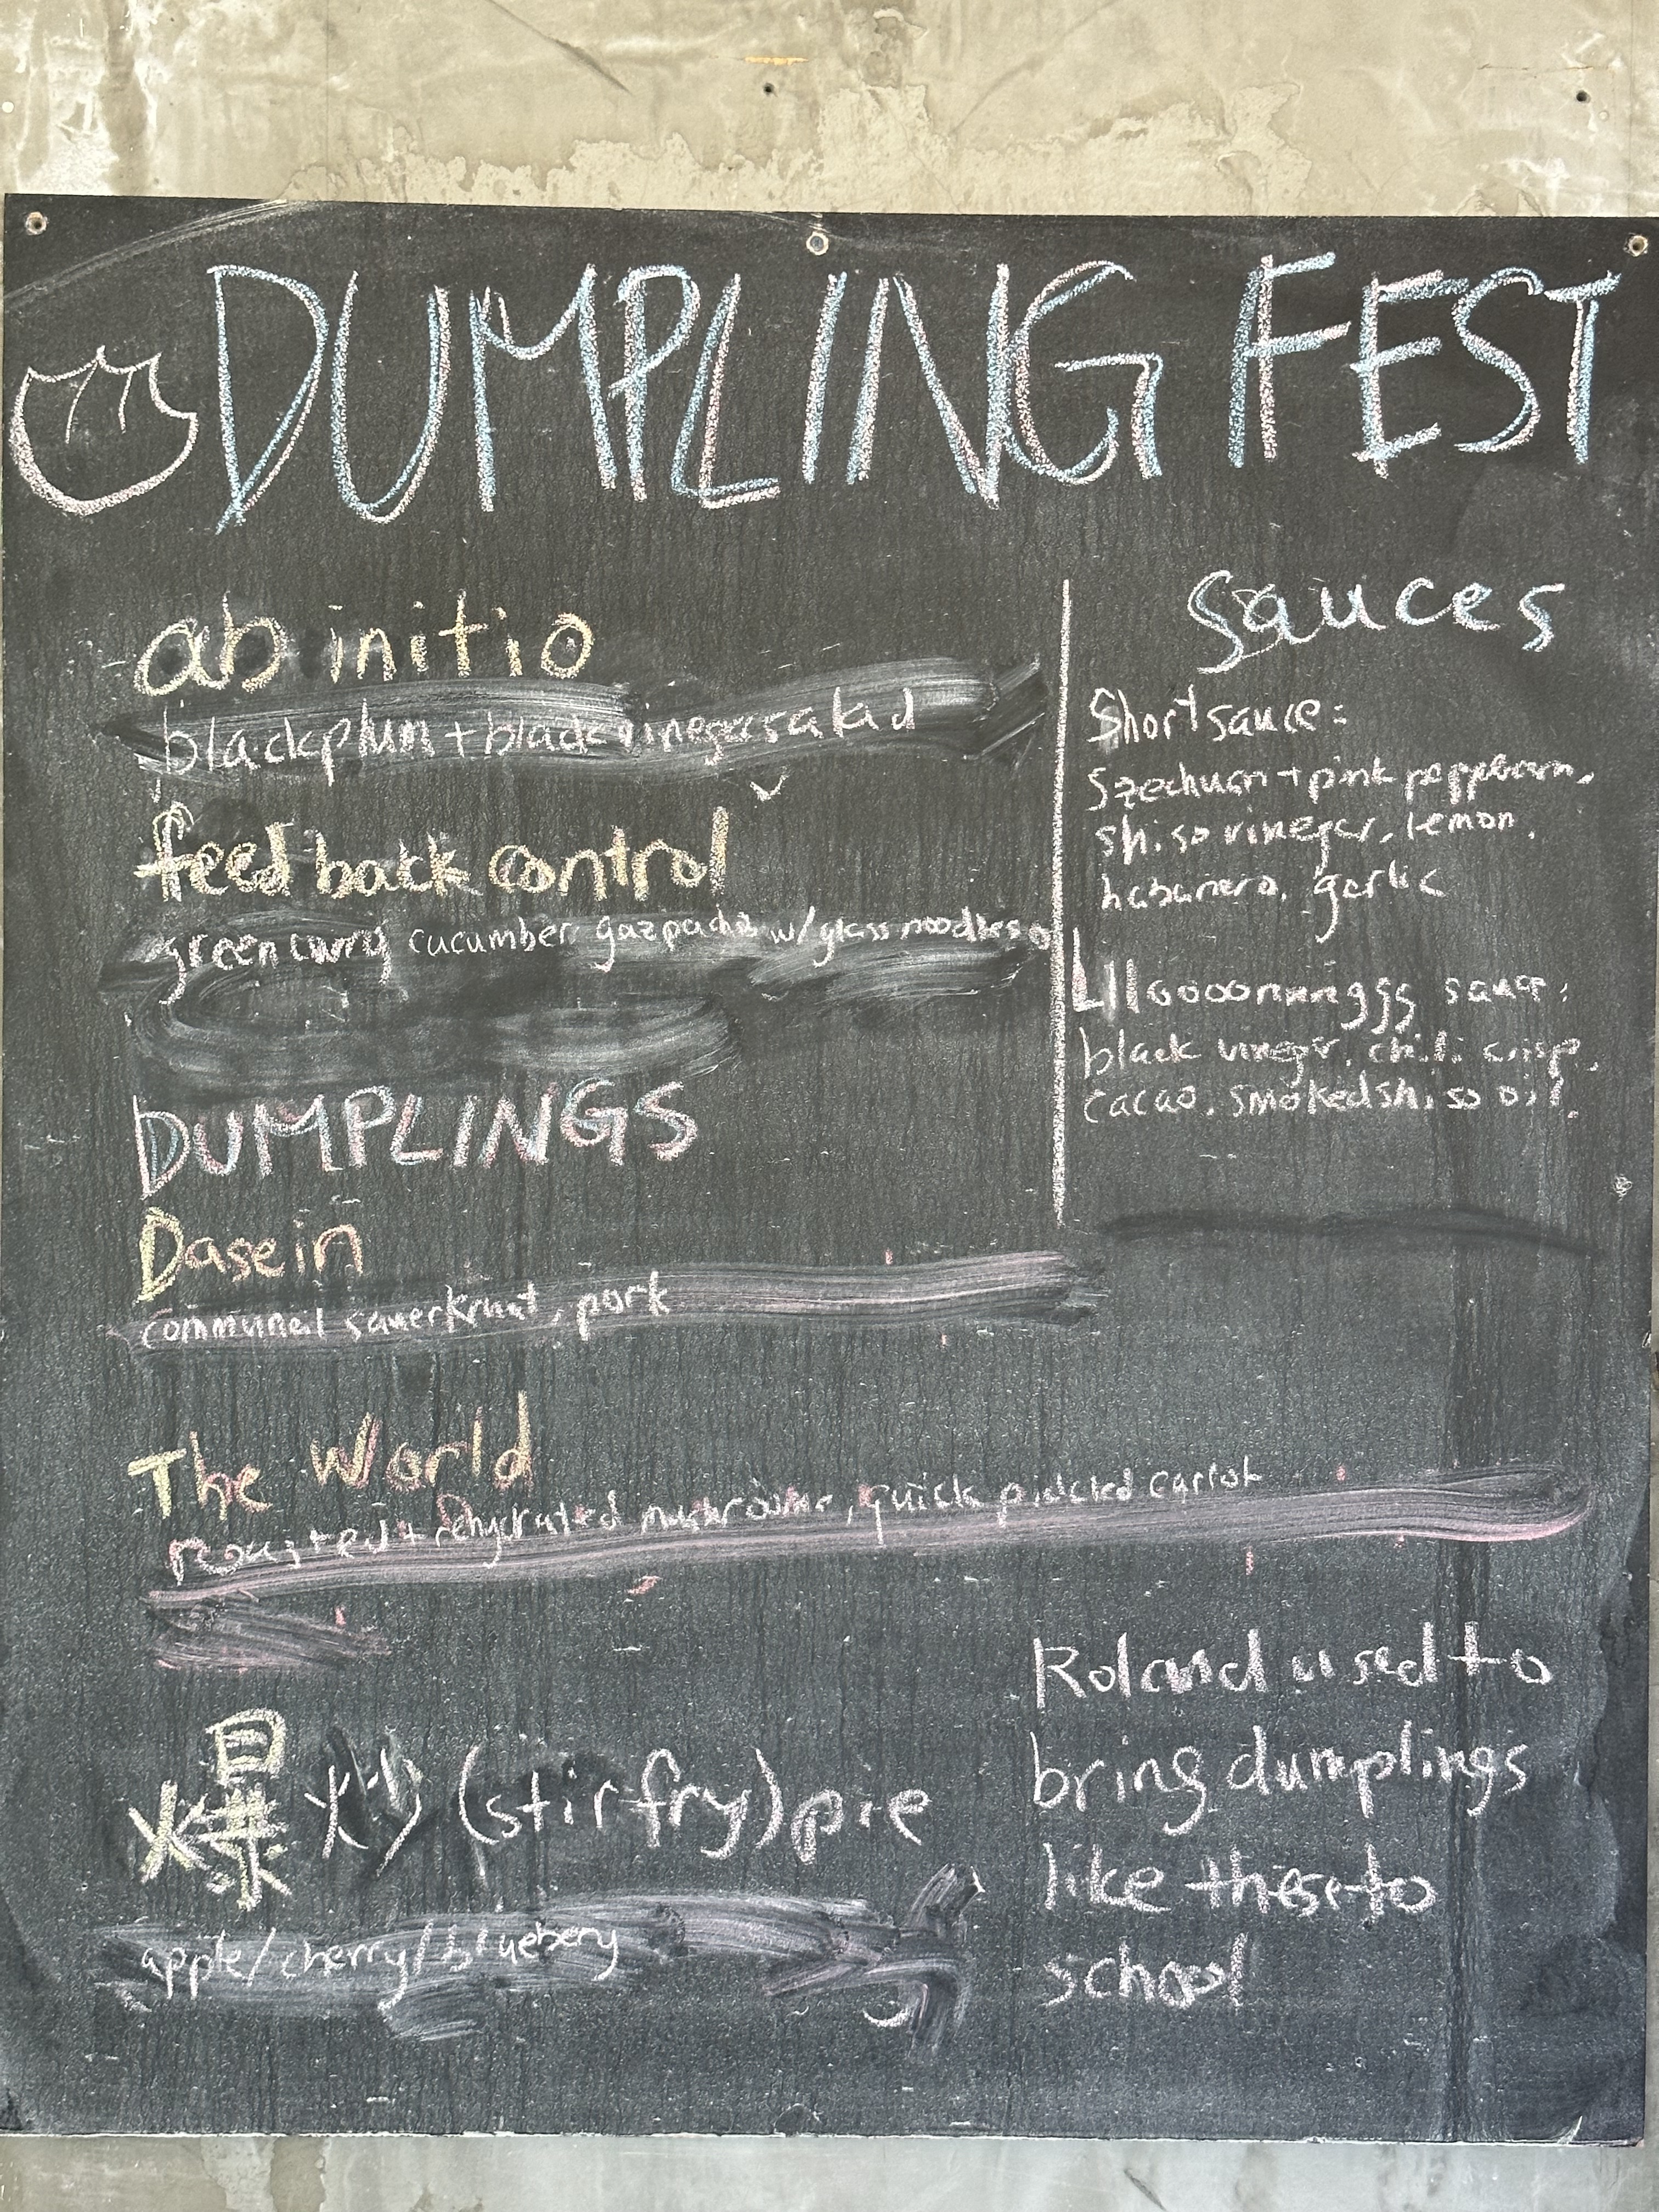 DUMPLING FEST
ab initio
black plum + black vinegar salad
feedback control
green curry cucumber gazpacho w/ glass noodles
DUMPLINGS
Dasein
communal sauerkraut, pork
The World
roasted + rehydrated mushrooms, quick pickled carrot
爆炒 (stir fry) pie
apple/cherry/blueberry
Sauces
Short sauce:
Szechuan + pink peppercorn,
shiso vinegar, lemon,
habanero, garlic
Llloooonnngggg sauce:
black vinegar, chili crisp,
cacao, smoked shiso oil.
Roland used to
bring dumplings
like these to
school